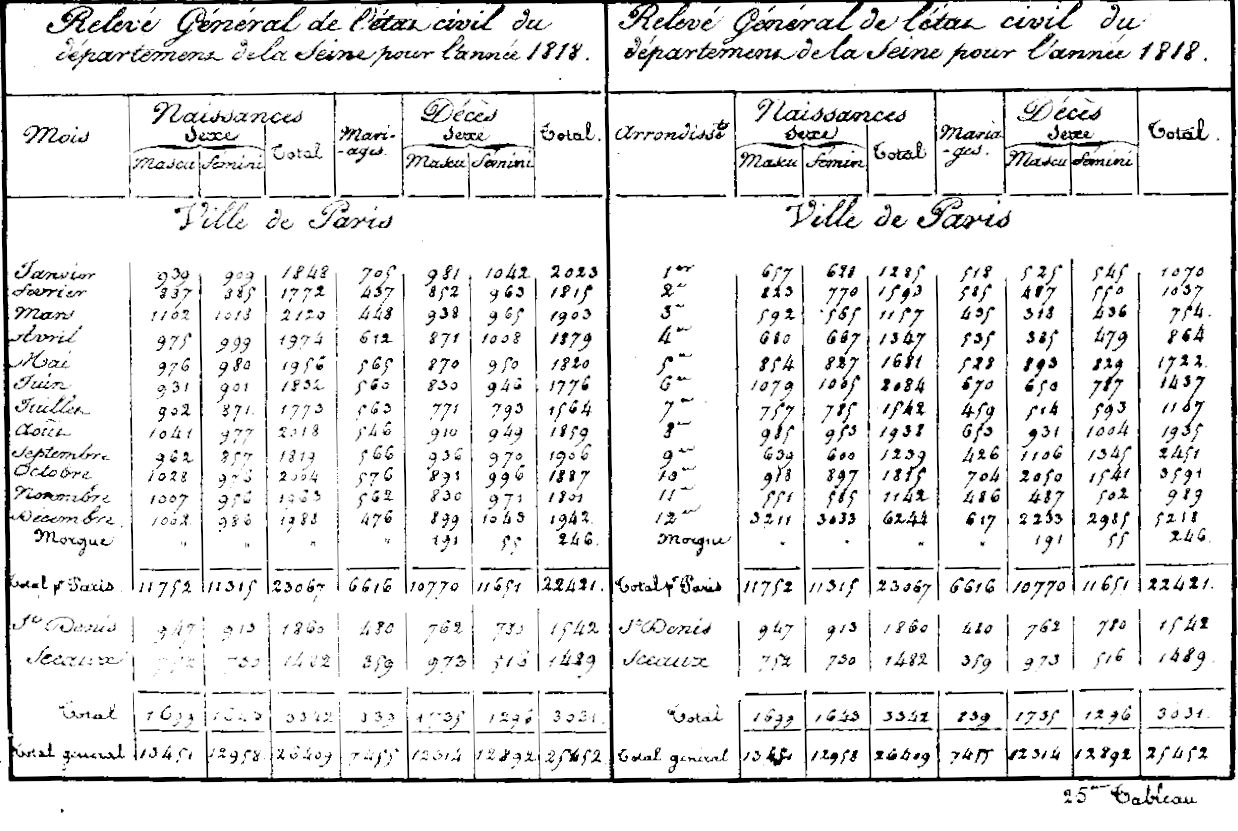 Relevé Général de l'état civil du
département de la Seine pour l'année 1818.
Mois Naissances Mari- Décès Total.
Sexe Total -ages. Sexe
Mascu Fémini Mascu Fémini
Ville de Paris
Janvier 939 909 1848 705 981 1042 2023
Février 887 885 1772 437 852 963 1815
Mars 1102 1018 2120 448 938 965 1903
Avril 975 999 1974 612 871 1008 1879
Mai 976 980 1956 565 870 950 1820
Juin 931 901 1832 560 830 946 1776
Juillet 902 871 1773 563 771 793 1564
Août 1041 977 2018 546 910 949 1859
Septembre 962 857 1819 566 936 970 1906
Octobre 1028 976 2004 576 891 996 1887
Novembre 1007 956 1963 562 830 971 1801
Décembre 1002 986 1988 476 899 1043 1942.
Morgue " " " " 191 55 246.
Total pr Paris 11752 11315 23067 6616 10770 11651 22421.
St Denis 947 913 1860 480 762 780 1542
Sceaux 752 730 1482 359 973 516 1489
Total 1699 1643 3342 839 1735 1296 3031.
Total général 13451 12958 26409 7455 12314 12892 25452
Relevé Général de l'état civil du
département de la Seine pour l'année 1818.
Arrondissts Naissances Maria Décès Total.
Sexe Total -ges. Sexe
Mascu Fémin Mascu Fémini
Ville de Paris
1er 657 628 1285 518 525 545 1070
2e 823 770 1593 585 487 550 1037
3e 592 565 1157 435 318 436 754.
4e 680 667 1347 535 385 479 864
5e 854 827 1681 528 893 829 1722.
6e 1079 1005 2084 670 650 787 1437
7e 757 785 1542 459 514 593 1107
8e 985 953 1938 653 931 1004 1935
9e 639 600 1239 426 1106 1345 2451
10e 918 897 1815 704 2050 1541 3591
11e 557 585 1142 486 487 502 989
12e 3211 3033 6244 617 2233 2985 5218
Morgue " " " " 191 55 246.
Total pr Paris 11752 11315 23067 6616 10770 11651 22421.
St Denis 947 913 1860 480 762 780 1542
Sceaux 752 730 1482 359 973 516 1489.
Total 1699 1643 3342 839 1735 1296 3031.
Total général 13451 12958 26409 7455 12314 12892 25452
25me Tableau